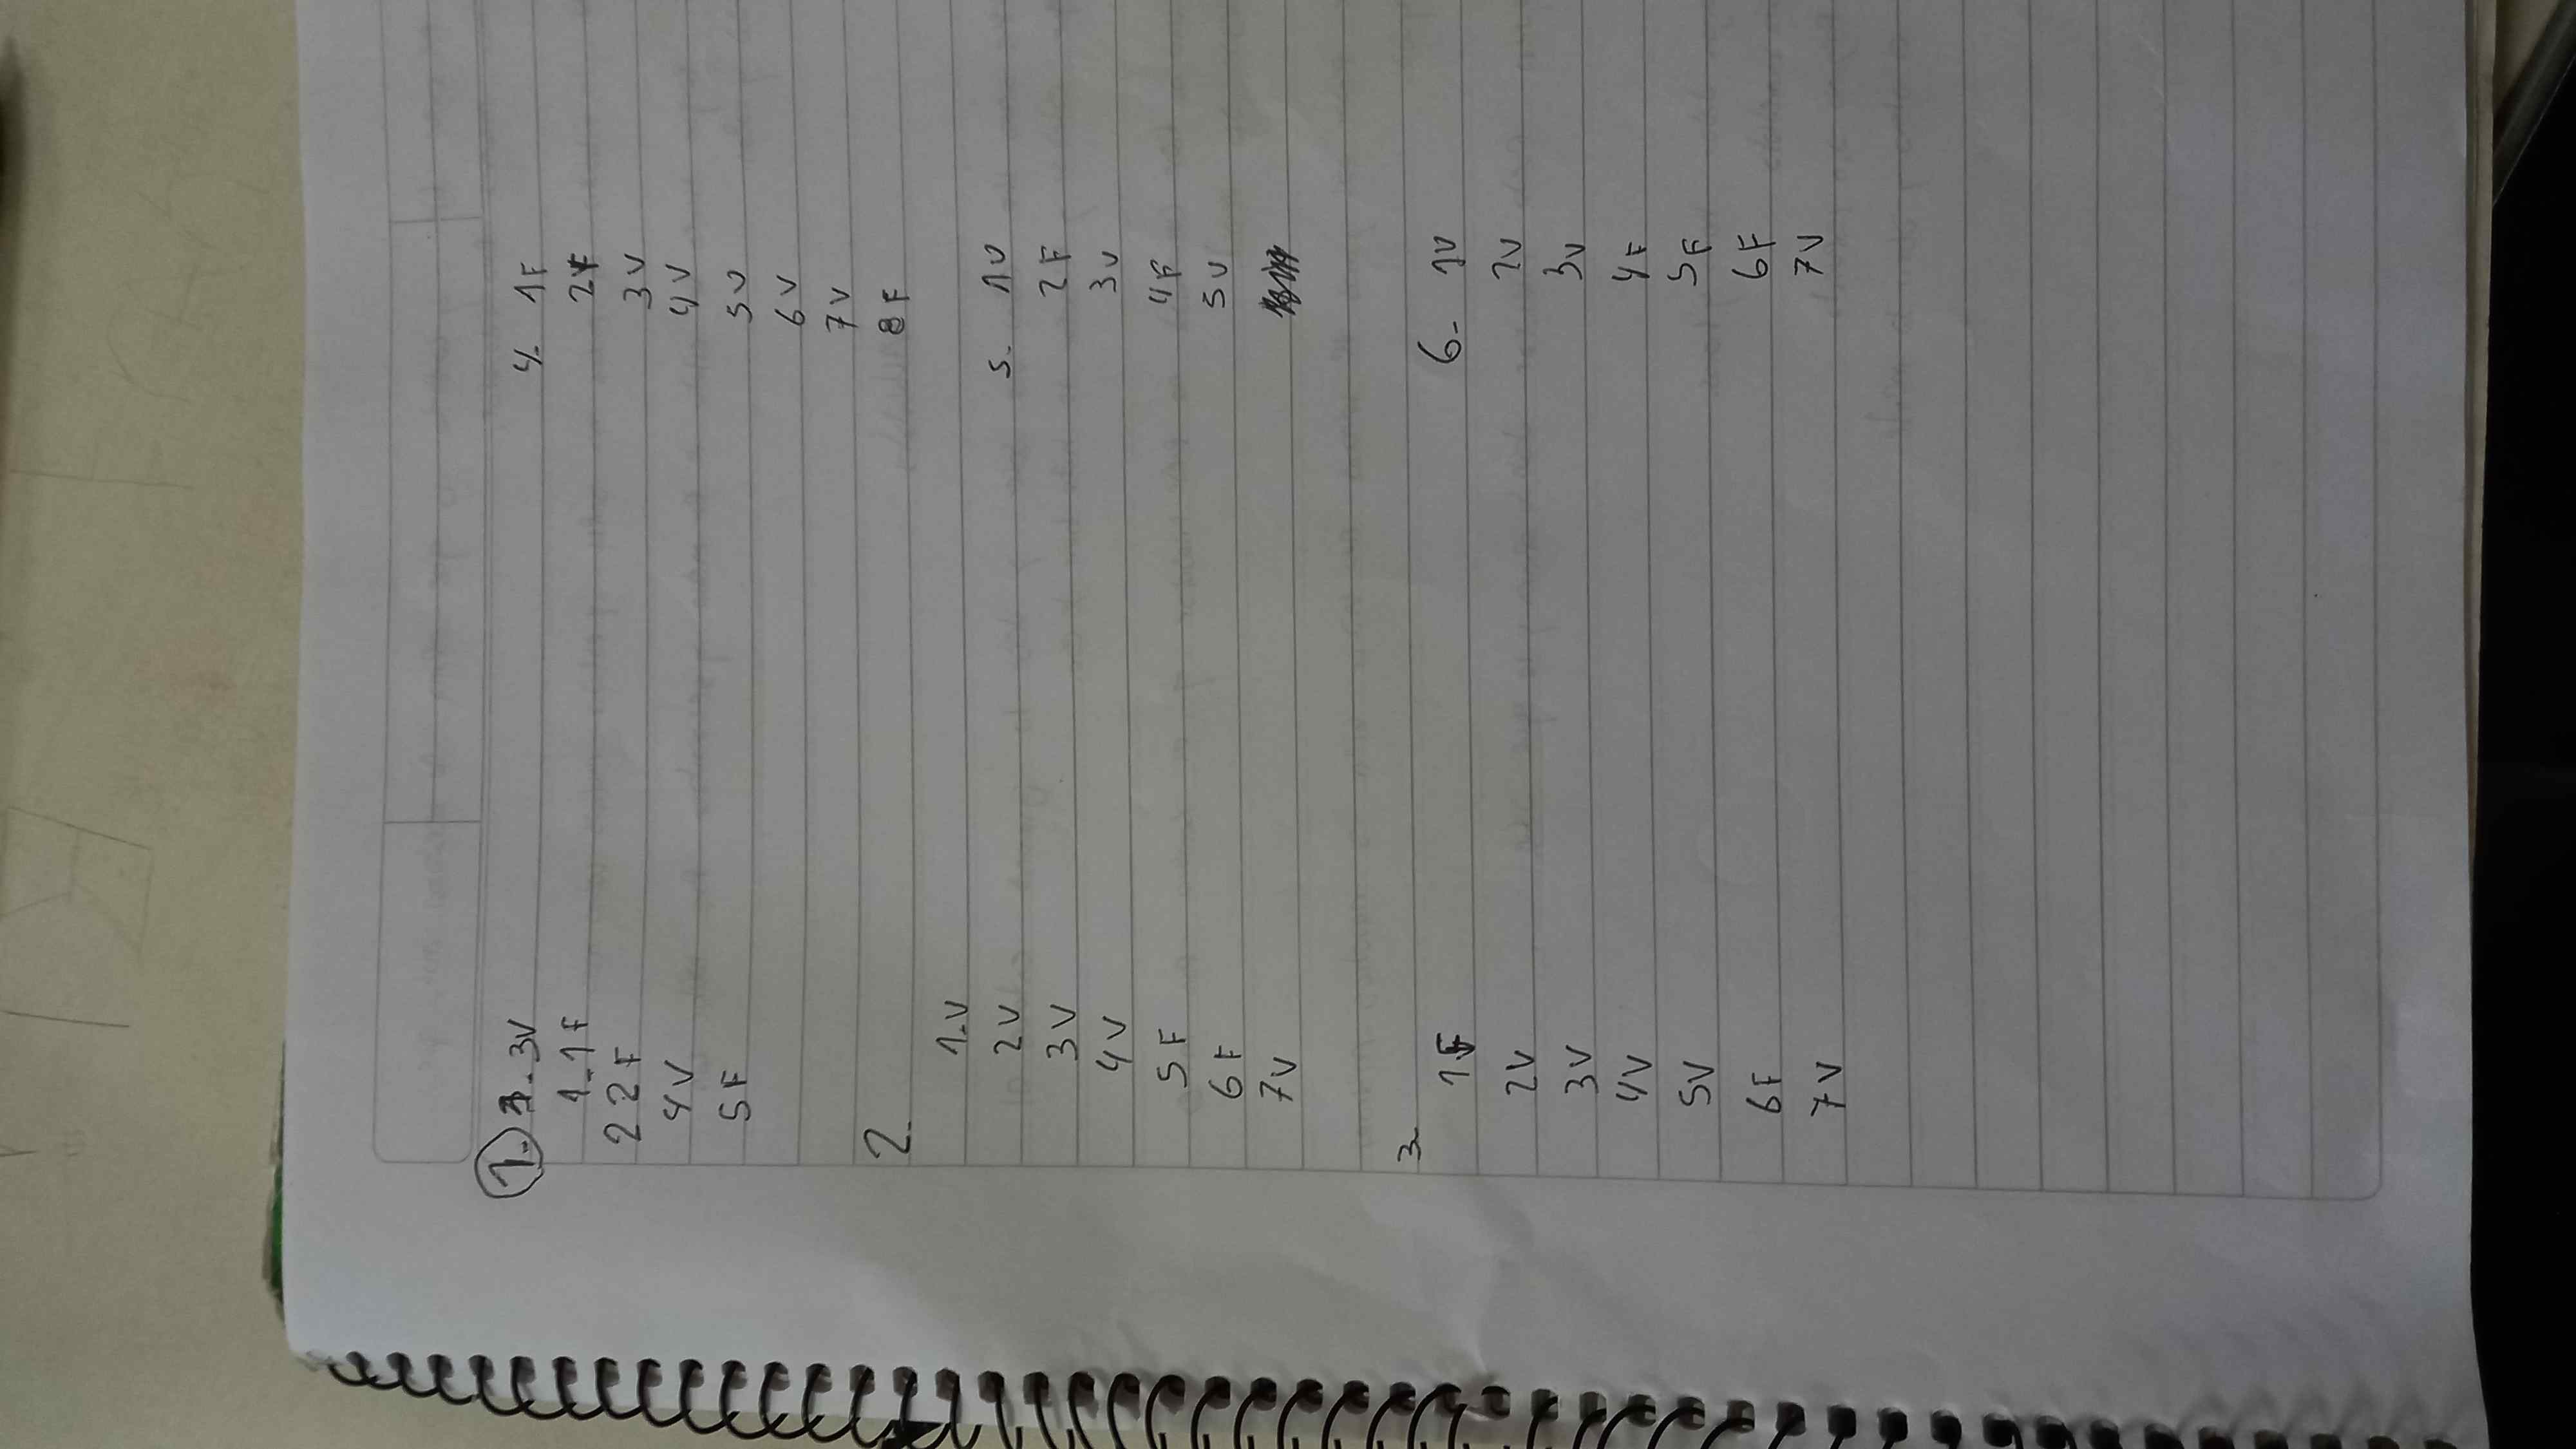 1. 3V
1-1F
2 2F
4V
5F
2.
1.V
2V
3V
4V
5F
6F
7V
3-
1F
2V
3V
4V
5V
6F
7V
4- 1F
2F
3V
4V
5V
6V
7V
8F
5- 1V
2F
3V
4F
5V
6- 1V
2V
3V
4F
5F
6F
7V